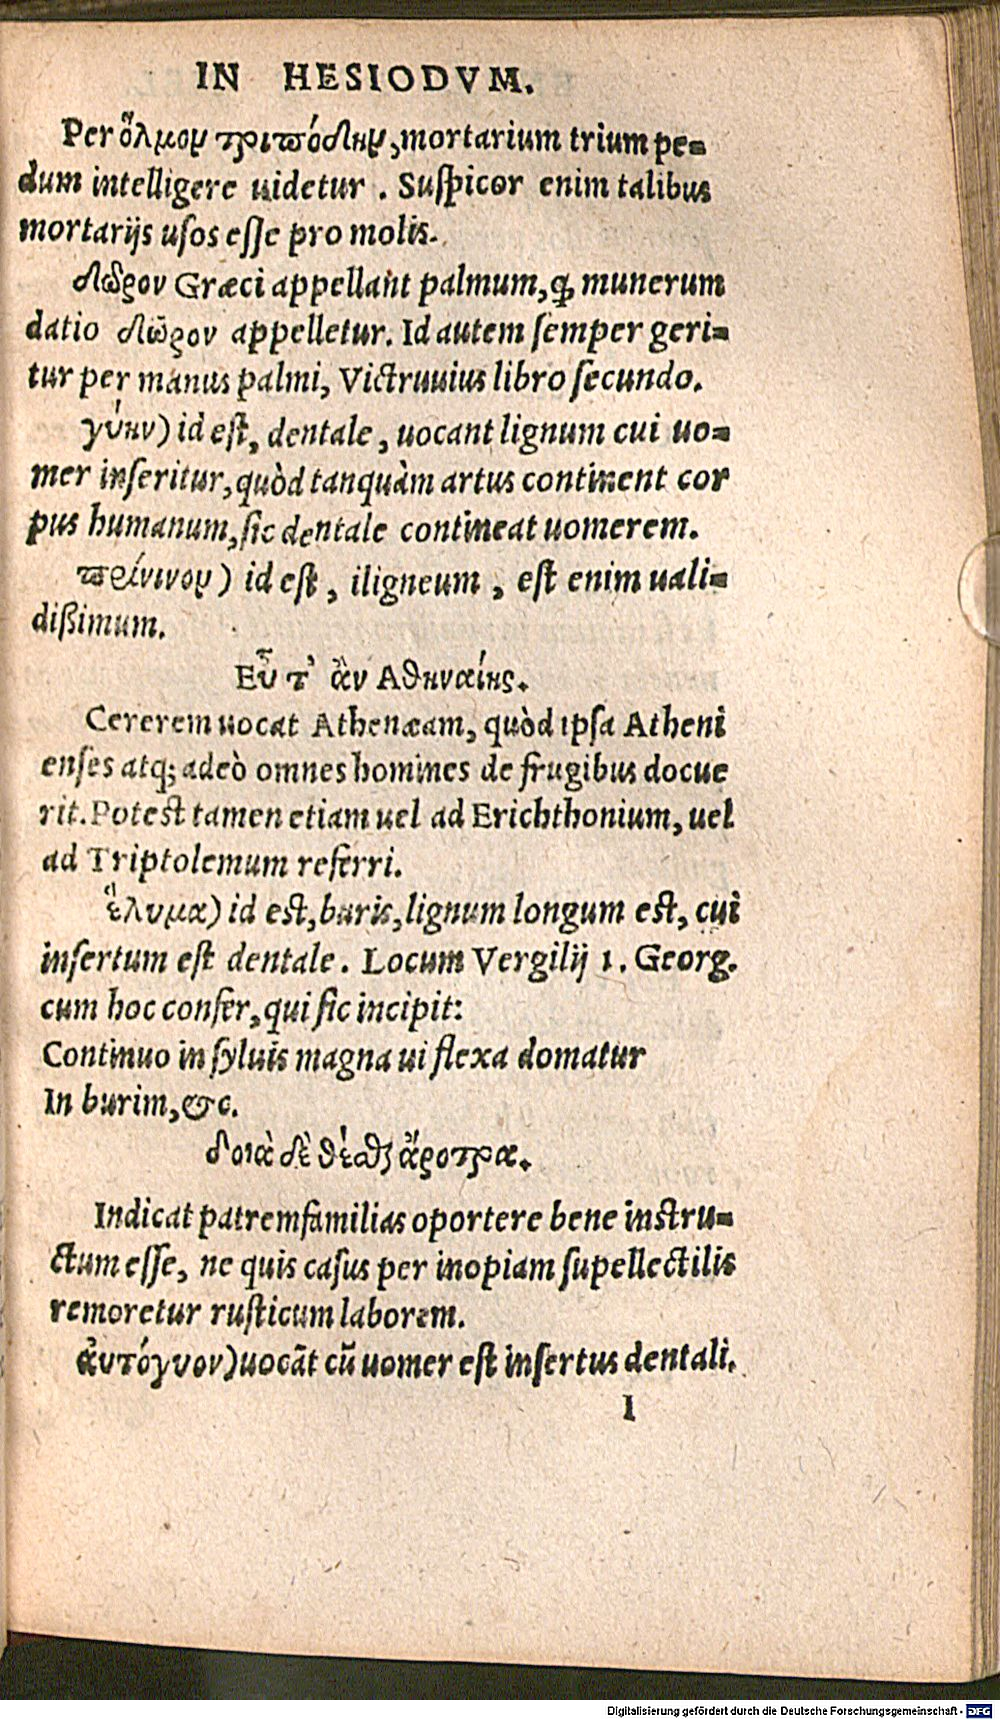 IN HESIODVM.
Per ὅλμον τριπόδην, mortarium trium pe=
dum intelligere uidetur. Suſpicor enim talibus
mortarijs uſos eſſe pro molis.
δῶρον Græci appellant palmum, ꝙ munerum
datio δῶρον appelletur. Id autem ſemper geri=
tur per manus palmi, Victruuius libro ſecundo.
γύην) id eſt, dentale, uocant lignum cui uo=
mer inſeritur, quòd tanquàm artus continent cor
pus humanum, ſic dentale contineat uomerem.
πρίνινον) id eſt, iligneum, eſt enim uali=
dißimum.
Εὖ τ' ἂν Αθηναίης.
Cererem uocat Athenæam, quòd ipſa Atheni
enſes atq; adeò omnes homines de frugibus docue
rit. Poteſt tamen etiam uel ad Erichthonium, uel
ad Triptolemum referri.
ἔλυμα) id eſt, buris, lignum longum eſt, cui
inſertum eſt dentale. Locum Vergilij 1. Georg.
cum hoc confer, qui ſic incipit:
Continuo in ſyluis magna ui flexa domatur
In burim, &c.
δοιὰ δὲ θέσθαι ἄροτρα.
Indicat patremfamilias oportere bene inſtru=
ctum eſſe, ne quis caſus per inopiam ſupellectilis
remoretur ruſticum laborem.
ἀυτόγυον) uocãt cũ uomer eſt inſertus dentali.
I
Digitalisierung gefördert durch die Deutsche Forschungsgemeinschaft - DFG